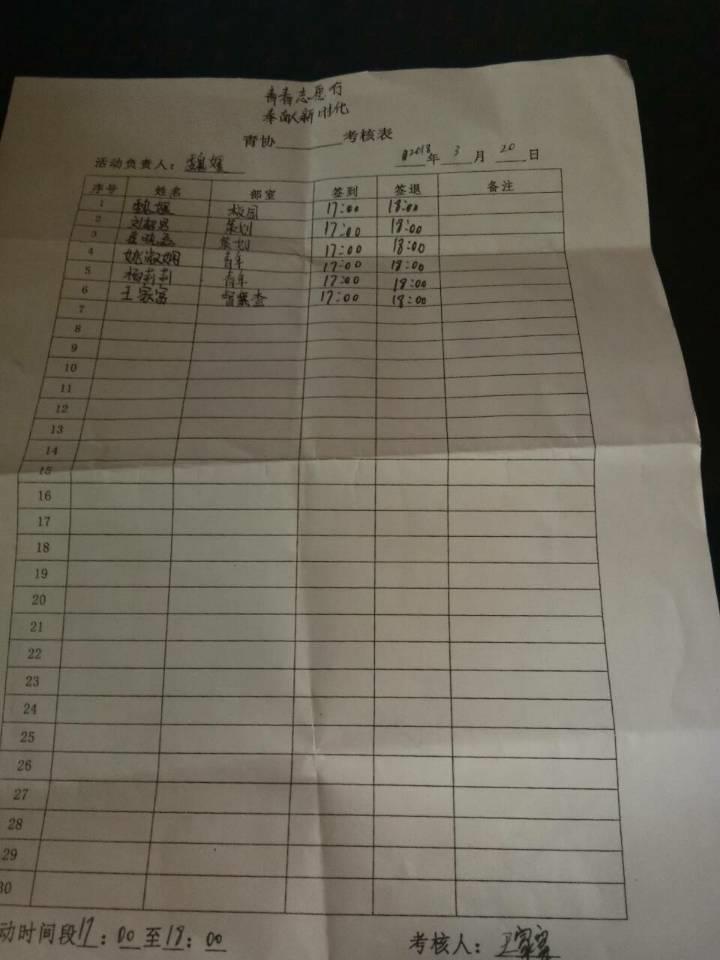 青春志愿行
奉献新时代
青协 考核表
活动负责人：魏媛 2018年 3 月 20 日
序号 姓名 部室 签到 签退 备注
1 魏媛 校园 17:00 18:00
2 策划 17:00 18:00
3 策划 17:00 18:00
4 姚淑娴 青年 17:00 18:00
5 杨莉莉 青年 17:00 18:00
6 王家富 17:00 18:00
7
8
9
10
11
12
13
14
15
16
17
18
19
20
21
22
23
24
25
26
27
28
29
30
动时间段17：00至18：00 考核人：王家富